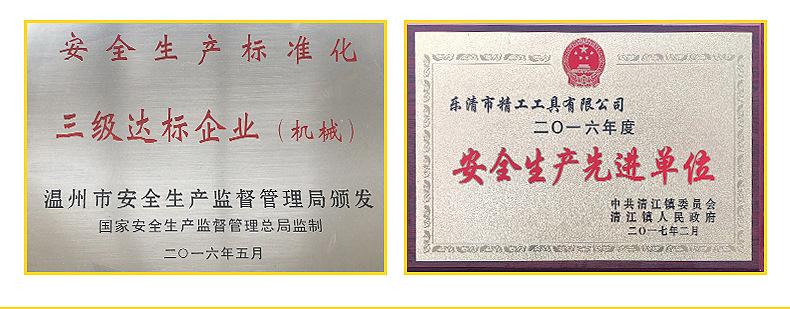 安全生产标准化
三级达标企业（机械）
温州市安全生产监督管理局颁发
国家安全生产监督管理总局监制
二〇一六年五月
乐清市精工工具有限公司
二〇一六年度
安全生产先进单位
中共清江镇委员会
清江镇人民政府
二〇一七年二月